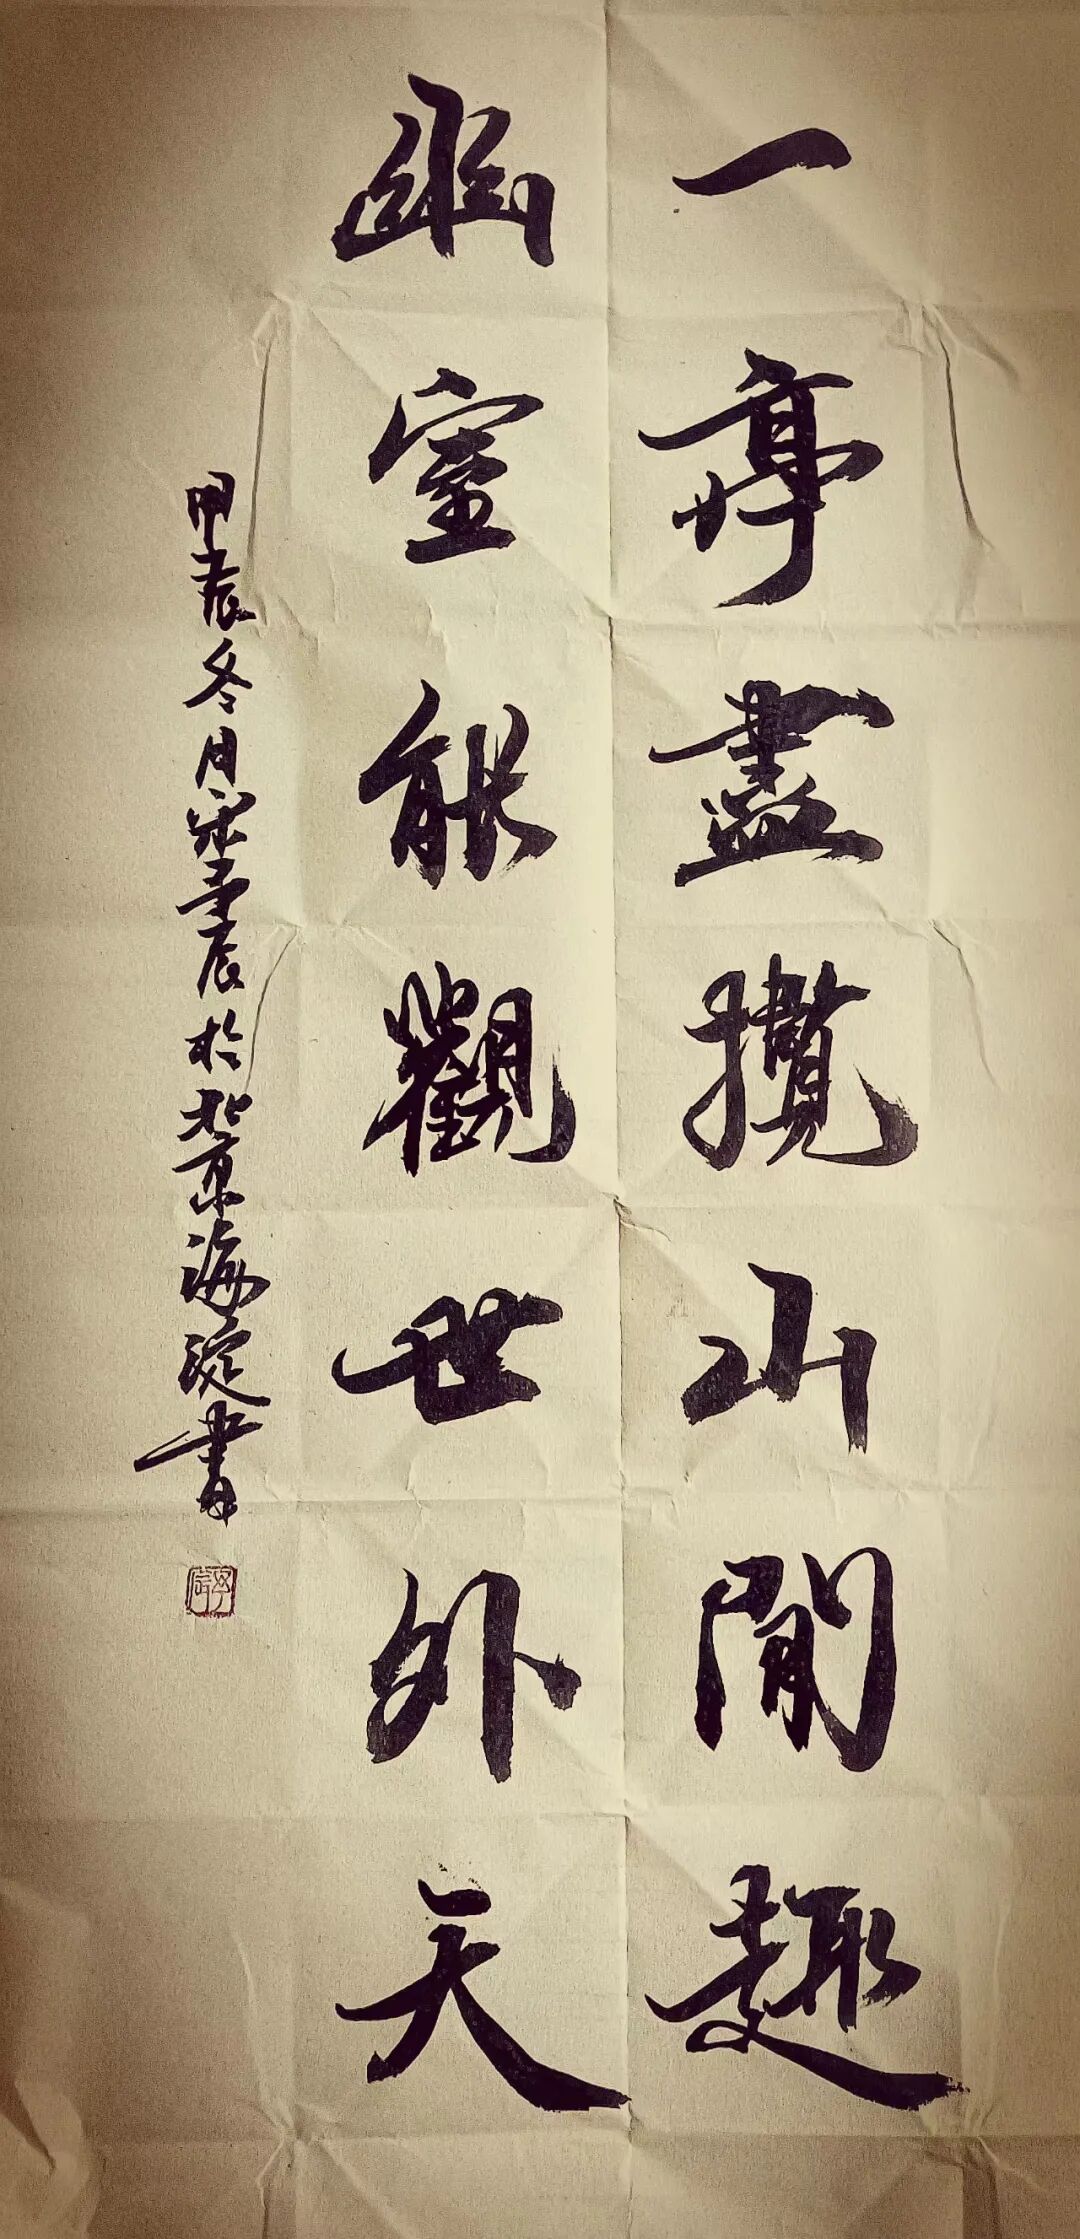 一亭盡攬山閒趣
幽室能觀世外天
甲辰冬月辰於北京海淀書